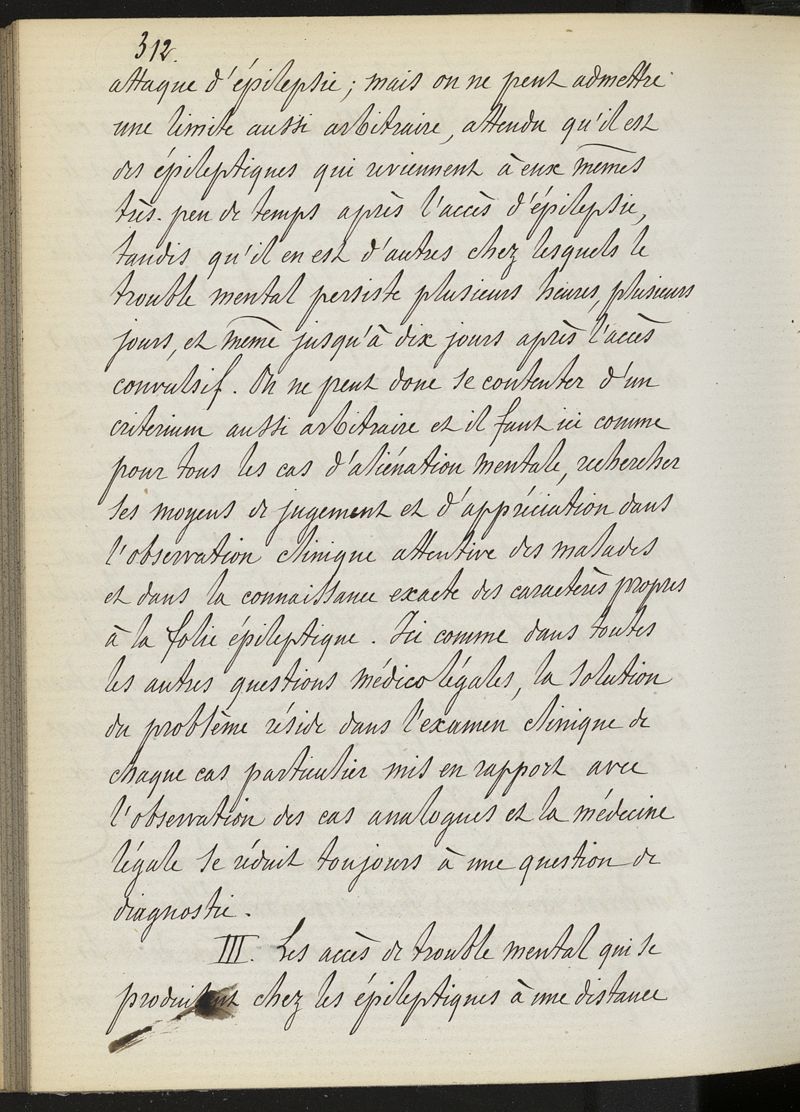 312.
attaque d'épilepsie ; mais on ne peut admettre
une limite aussi arbitraire, attendu qu'il est
des épileptiques qui reviennent à eux mêmes
très-peu de temps après l'accès d'épilepsie,
tandis qu'il en est d'autres chez lesquels le
trouble mental persiste plusieurs heures, plusieurs
jours, et même jusqu'à dix jours après l'accès
convulsif. On ne peut donc se contenter d'un
criterium aussi arbitraire et il faut ici comme
pour tous les cas d'aliénation mentale, rechercher
ses moyens de jugement et d'appréciation dans
l'observation clinique attentive des malades
et dans la connaissance exacte des caractères propres
à la folie épileptique. Ici comme dans toutes
les autres questions médico légales, la solution
du problème réside dans l'examen clinique de
chaque cas particulier mis en rapport avec
l'observation des cas analogues et la médecine
légale se réduit toujours à une question de
diagnostic.
III. Les accès de trouble mental qui se
produisent chez les épileptiques à une distance